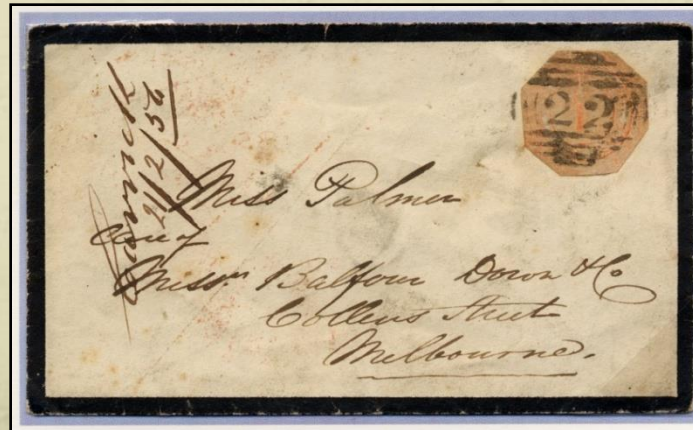 Warwick
21/2/56
22
Miss Palmer
Care of
Messrs Balfour Down & Co
Collins Street
Melbourne.